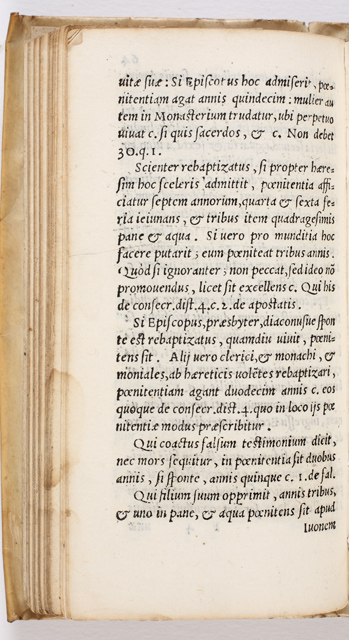 uitæ suæ: Si Episcopus hoc admiserit, pœ-
nitentiam agat annis quindecim: mulier au
tem in Monasterium trudatur, ubi perpetuo
uiuat c. si quis sacerdos, & c. Non debet
30.q.1.
Scienter rebaptizatus, si propter hære-
sim hoc sceleris admittit, pœnitentia affi-
ciatur septem annorum, quarta & sexta fe-
ria ieiunans, & tribus item quadragesimis
pane & aqua. Si uero pro munditia hoc
facere putarit; eum pœniteat tribus annis.
Quòd si ignoranter; non peccat, sed ideo nō
promouendus, licet sit excellens c. Qui bis
de consecr. dist. 4. c. 2. de apostatis.
Si Episcopus, præsbyter, diaconusue spon
te est rebaptizatus, quamdiu uiuit, pœni-
tens sit. Alij uero clerici, & monachi, &
moniales, ab hæreticis uolētes rebaptizari,
pœnitentiam agant duodecim annis c. eos
quoque de consecr. dist. 4. quo in loco ijs pœ
nitentiæ modus præscribitur.
Qui coactus falsum testimonium dicit,
nec mors sequitur, in pœnitentia sit duobus
annis, si sponte, annis quinque c. 1. de fal.
Qui filium suum opprimit, annis tribus,
& uno in pane, & aqua pœnitens sit apud
luonem